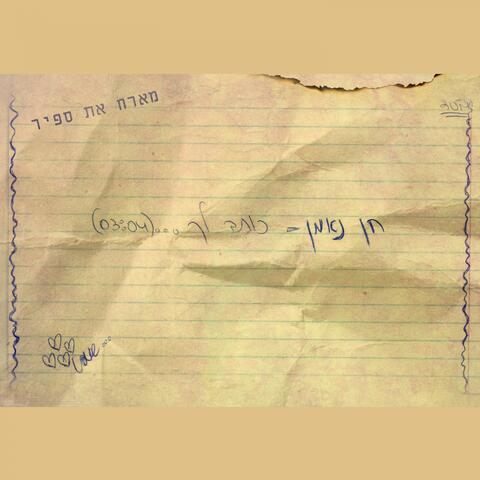 מארח את ספיר
חן נאמן - כותב לך...(03:04)
Love...